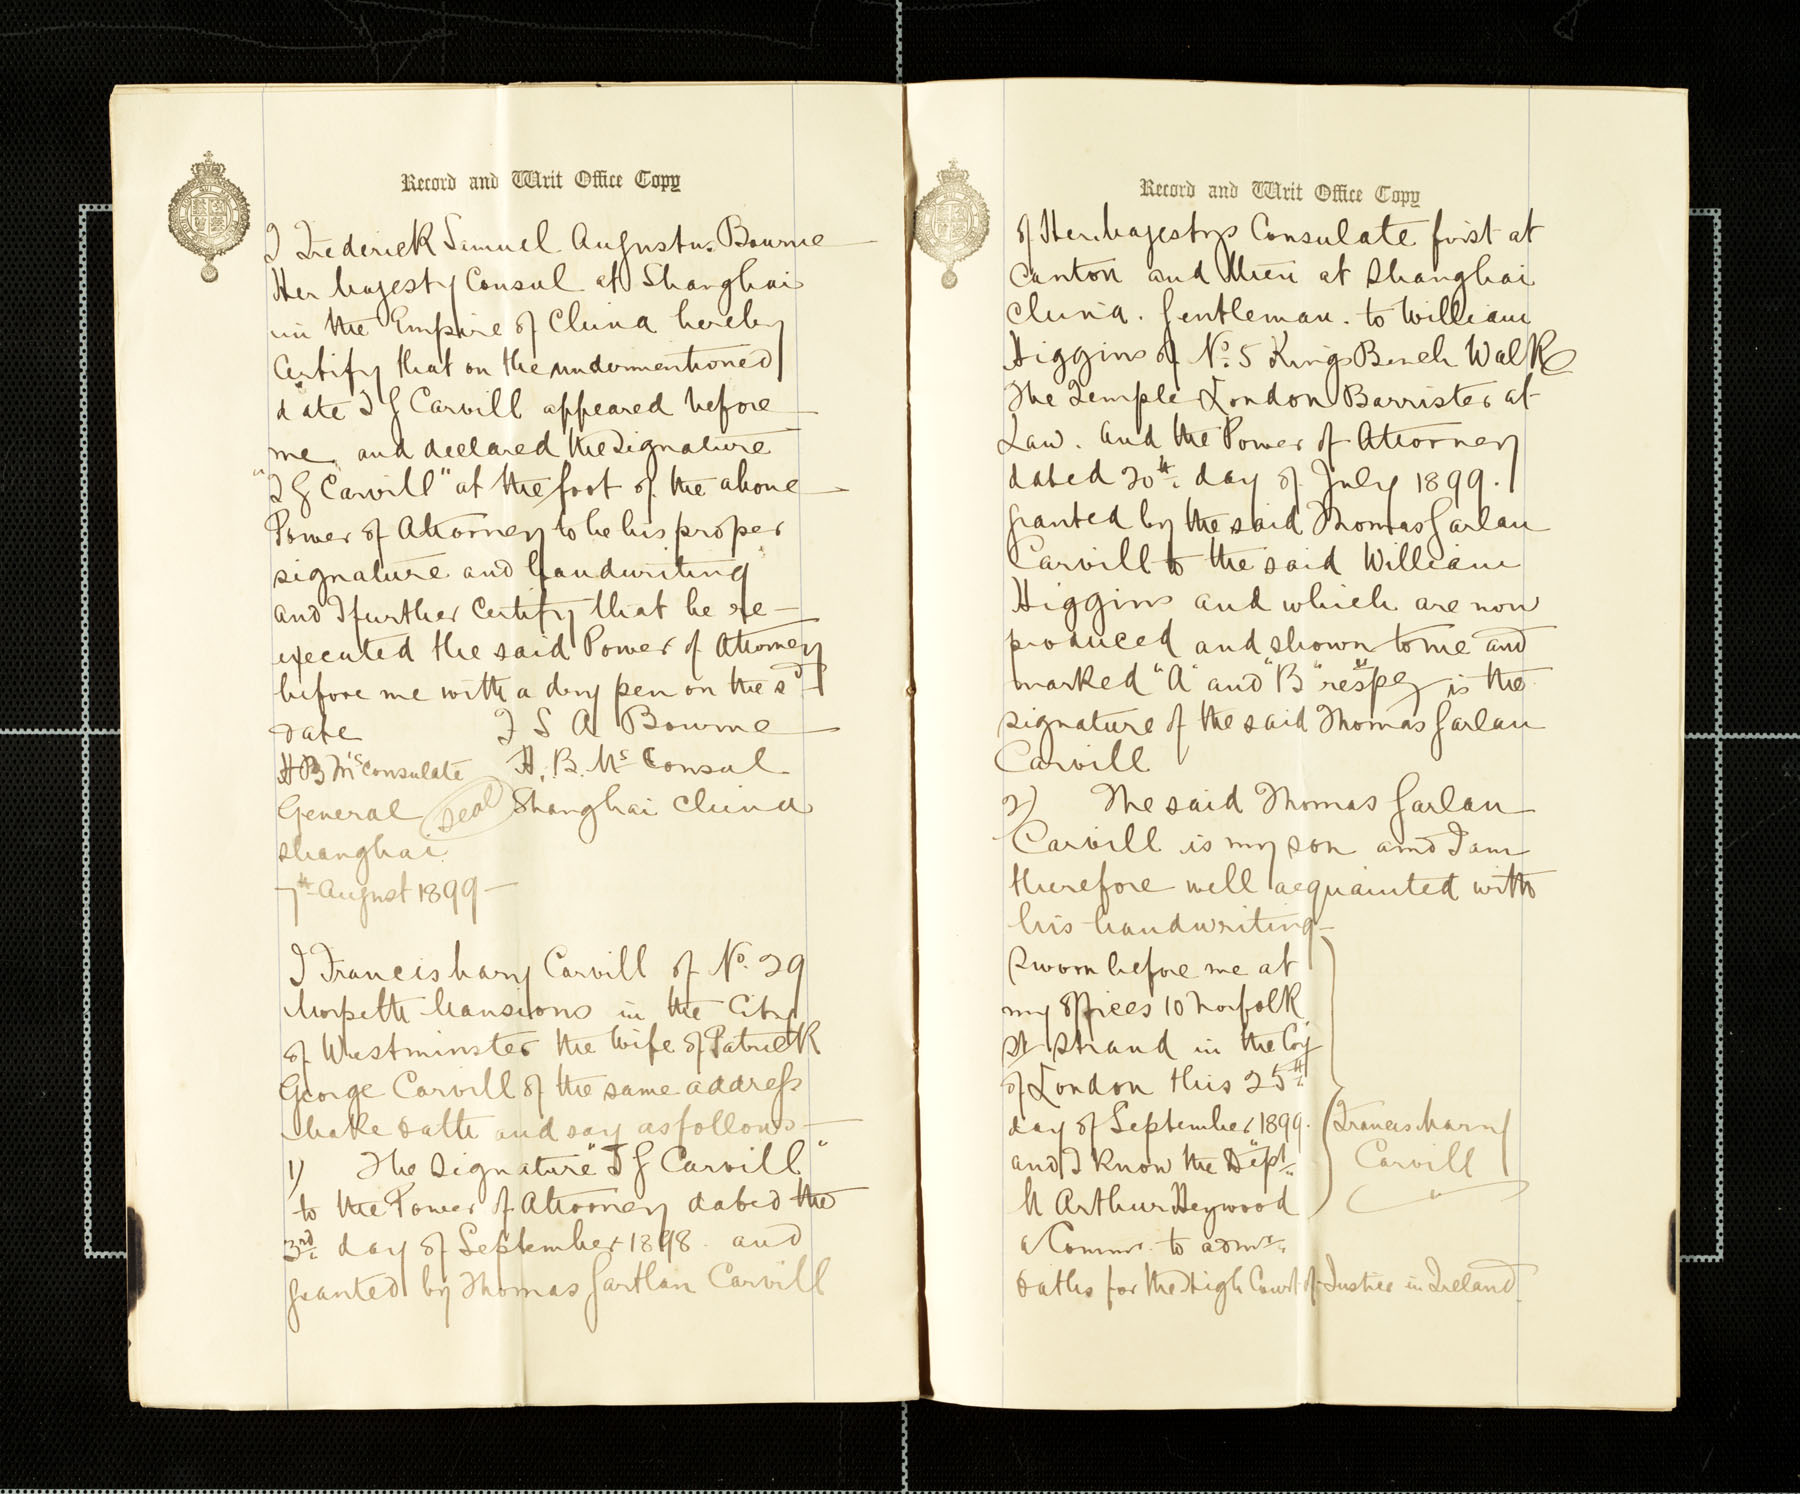 Record and Writ Office Copy
I Frederick Samuel Augustus Bourne
Her Majesty Consul at Shanghai
in the Empire of China hereby
Certify that on the undermentioned
date T G Carvill appeared before
me and declared the signature
"T G Carvill" at the foot of the above
Power of Attorney to be his proper
signature and handwriting
and I further Certify that he re-
executed the said Power of Attorney
before me with a dry pen on the sd
date F S A Bourne
H B Ms Consulate H. B. Ms Consul
General seal Shanghai China
Shanghai
7th August 1899
I Francis Mary Carvill of No. 29
Morpeth Mansions in the City
of Westminster the Wife of Patrick
George Carvill of the same address
Make Oath and say as follows
1) The Signature "T G Carvill"
to the Power of Attorney dated the
3rd day of September 1898 and
granted by Thomas Gartlan Carvill
Record and Writ Office Copy
of Her Majestys Consulate first at
Canton and then at Shanghai
China. Gentleman. to William
Higgins of No. 5 Kings Bench Walk
The Temple London Barrister at
Law. and the Power of Attorney
dated 20th day of July 1899.
granted by the said Thomas Garlan
Carvill to the said William
Higgins and which are now
produced and shown to me and
marked "A" and "B" respy is the
signature of the said Thomas Garlan
Carvill
2) The said Thomas Garlan
Carvill is my son and I am
therefore well acquainted with
his handwriting
Sworn before me at
my Offices 10 Norfolk
St Strand in the Coy
of London this 25th
day of September 1899. Francis Mary
and I know the Dept. Carvill
M Arthur Heywood
a Commr. to admr.
Oaths for the High Court of Justice in Ireland.